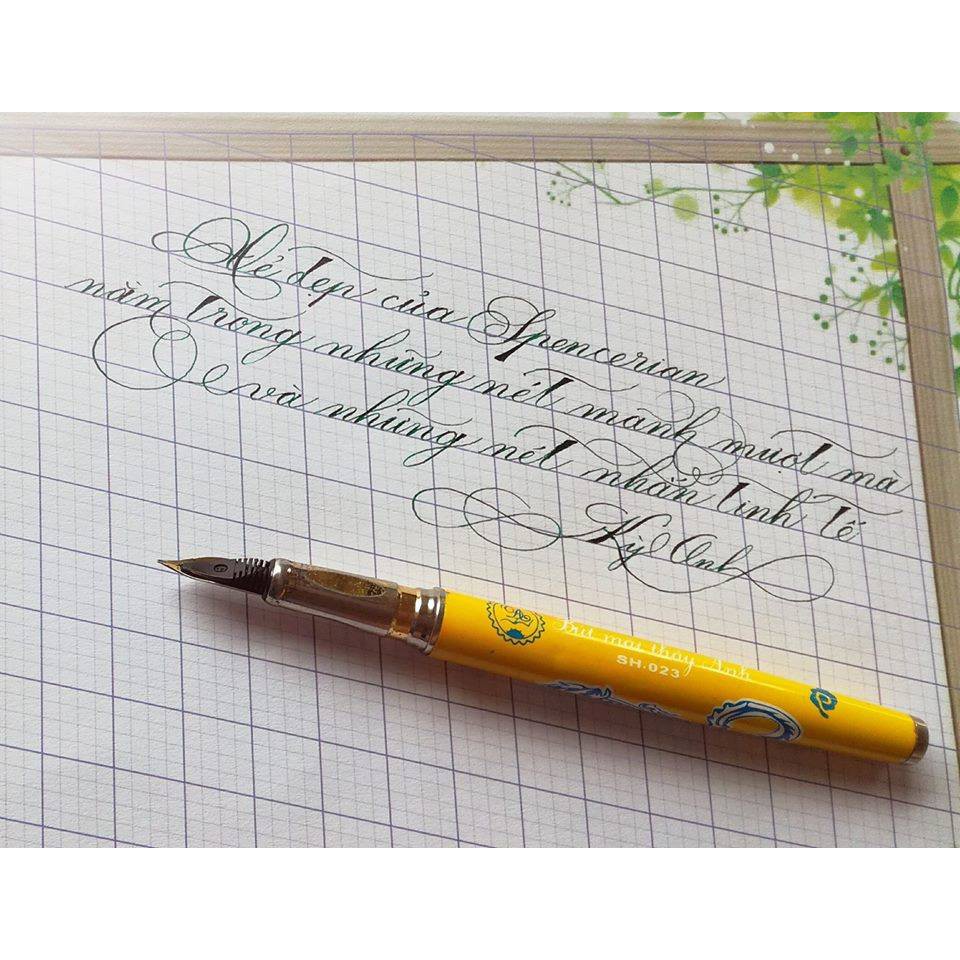 Vẻ đẹp của Spencerian
nằm trong những nét mảnh mượt mà
và những nét nhấn tinh tế
Kỳ Anh
Bút mài thầy Ánh
SH.023